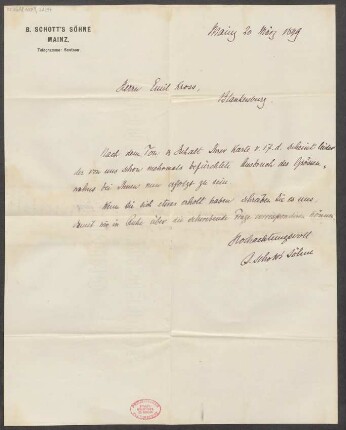 B. SCHOTT'S SÖHNE
MAINZ.
Mainz 20 März 1899
Herrn Emil Kross,
Blankenburg.
Nach dem Ton & Inhalt Ihrer Karte v. 17. d. scheint leider
der von uns schon mehrmals befürchtete Ausbruch des
bei Ihnen nun erfolgt zu sein.
Wenn Sie sich etwas erholt haben schreiben Sie es uns
damit wir in Ruhe über die schwebende Frage correspondieren können
Hochachtungsvoll
B. Schott's Söhne